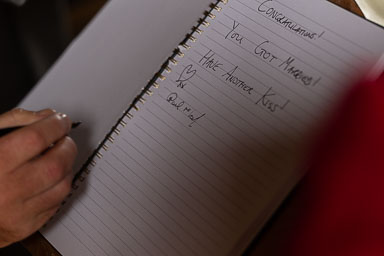 Congratulations!
You Got Married!
Have Another Kiss!